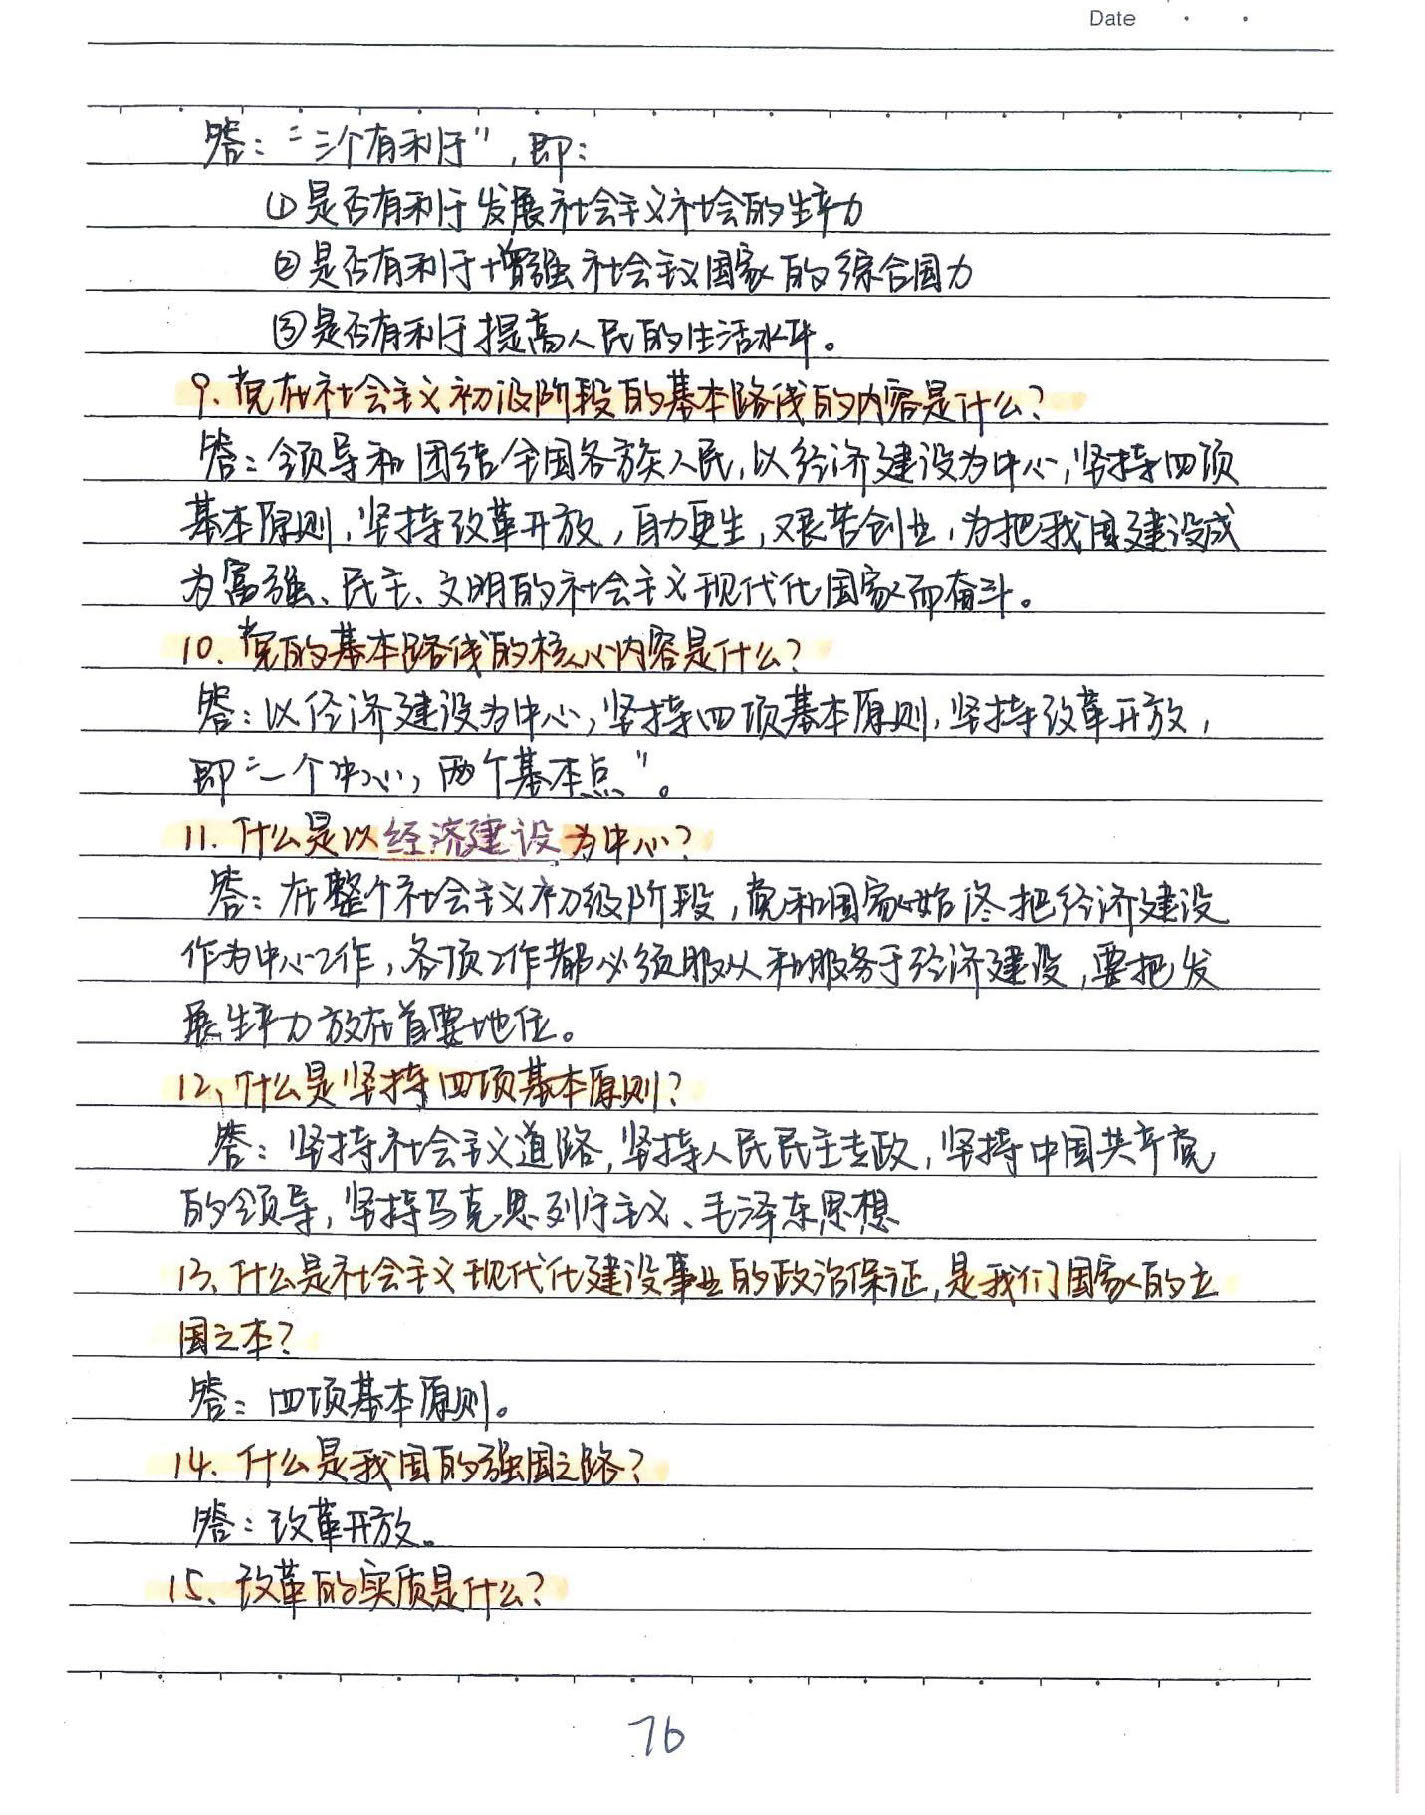 Date
答：“三个有利于”，即：
①是否有利于发展社会主义社会的生产力
②是否有利于增强社会主义国家的综合国力
③是否有利于提高人民的生活水平。
9、党在社会主义初级阶段的基本路线的内容是什么？
答：领导和团结全国各族人民，以经济建设为中心，坚持四项
基本原则，坚持改革开放，自力更生，艰苦创业，为把我国建设成
为富强、民主、文明的社会主义现代化国家而奋斗。
10、党的基本路线的核心内容是什么？
答：以经济建设为中心，坚持四项基本原则，坚持改革开放，
即“一个中心，两个基本点”。
11. 什么是以经济建设为中心？
答：在整个社会主义初级阶段，党和国家始终把经济建设
作为中心工作，各项工作都必须服从和服务于经济建设，要把发
展生产力放在首要地位。
12、什么是坚持四项基本原则？
答：坚持社会主义道路，坚持人民民主专政，坚持中国共产党
的领导，坚持马克思列宁主义、毛泽东思想
13、什么是社会主义现代化建设事业的政治保证，是我们国家的立
国之本？
答：四项基本原则。
14、什么是我国的强国之路？
答：改革开放。
15、改革的实质是什么？
76